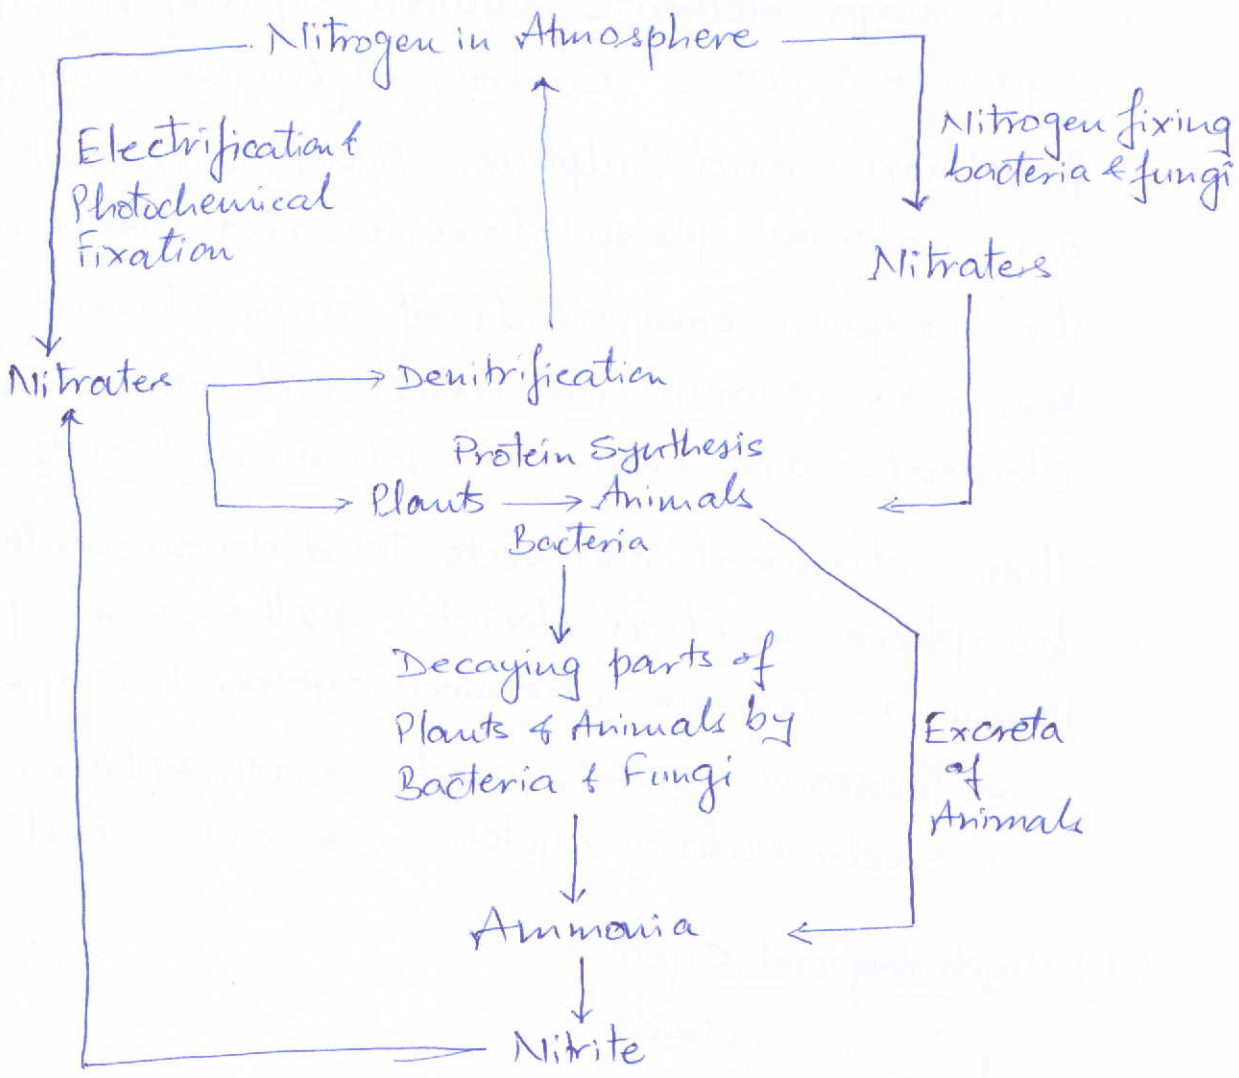 Nitrogen in Atmosphere
Electrification &
Photochemical
Fixation
Nitrogen fixing
bacteria & fungi
Nitraters
Nitrates
Denitrification
Protein Synthesis
Plants
Animals
Bacteria
Decaying parts of
Plants & Animals by
Bacteria & Fungi
Excreta
of
Animals
Ammonia
Nitrite